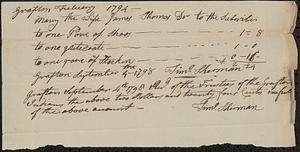 Grafton February 1794
Mary the Wife James Thomas Dr to the Subscriber
to one Pare of Shoes 1=8
to one 1-0
to one pare of Stockin 0-16
Grafton September the 4 1798 Timo Sherman
Grafton September 4th 1798 of the Trustees of the Grafton
Indians the above two Dollars and twenty four Cents in full
of the above amount
Timo Sherman